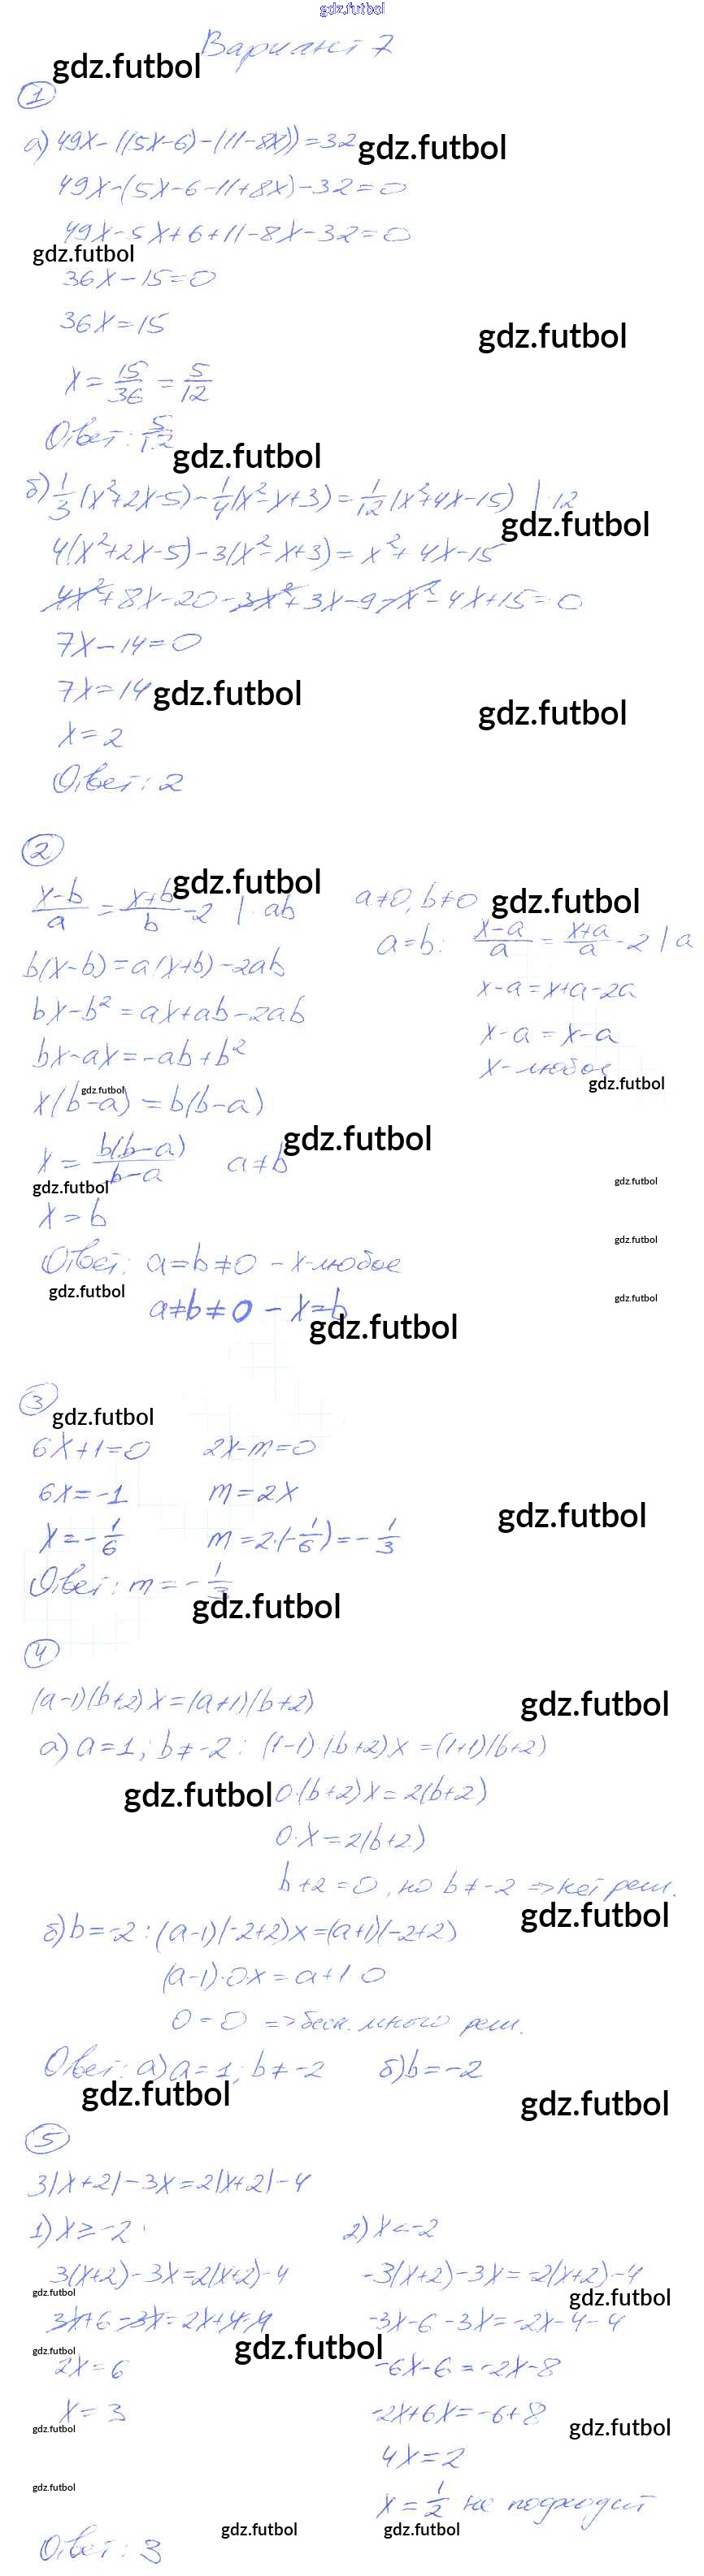 gdz.futbol
Вариант 7
gdz.futbol
1
а) 49x-((5x-6)-(11-8x))=32
gdz.futbol
49x-(5x-6-11+8x)-32=0
49x-5x+6+11-8x-32=0
gdz.futbol
36x-15=0
36x=15
gdz.futbol
x=15/36=5/12
Ответ: 5/12
gdz.futbol
б) 1/3(x²+2x-5)-1/4(x²-x+3)=1/12(x²+4x-15) |·12
gdz.futbol
4(x²+2x-5)-3(x²-x+3)=x²+4x-15
4x²+8x-20-3x²+3x-9-x²-4x+15=0
7x-14=0
7x=14
gdz.futbol
gdz.futbol
x=2
Ответ: 2
2
gdz.futbol
(x-b)/a=(x+b)/b-2 |·ab
a≠0, b≠0
gdz.futbol
a=b: (x-a)/a=(x+a)/a-2 |·a
b(x-b)=a(x+b)-2ab
x-a=x+a-2a
bx-b²=ax+ab-2ab
x-a=x-a
bx-ax=-ab+b²
x-любое
gdz.futbol
gdz.futbol
x(b-a)=b(b-a)
gdz.futbol
x=b(b-a)/(b-a) a≠b
gdz.futbol
gdz.futbol
x=b
gdz.futbol
Ответ: a=b≠0 - x-любое
gdz.futbol
gdz.futbol
a≠b≠0 - x=b
gdz.futbol
3
gdz.futbol
6x+1=0 2x-m=0
6x=-1 m=2x
gdz.futbol
x=-1/6 m=2·(-1/6)=-1/3
Ответ: m=-1/3
gdz.futbol
4
(a-1)(b+2)x=(a+1)(b+2)
gdz.futbol
а) a=1; b≠-2: (1-1)·(b+2)x=(1+1)(b+2)
gdz.futbol
0·(b+2)x=2(b+2)
0·x=2(b+2)
b+2=0, но b≠-2 =>нет реш.
gdz.futbol
б) b=-2: (a-1)(-2+2)x=(a+1)(-2+2)
(a-1)·0x=a+1·0
0=0 =>беск. много реш.
Ответ: а) a=1; b≠-2 б) b=-2
gdz.futbol
gdz.futbol
5
3|x+2|-3x=2|x+2|-4
1) x≥-2 2) x<-2
3(x+2)-3x=2(x+2)-4
-3(x+2)-3x=-2(x+2)-4
gdz.futbol
gdz.futbol
3x+6-3x=2x+4-4
-3x-6-3x=-2x-4-4
gdz.futbol
gdz.futbol
2x=6
-6x-6=-2x-8
x=3
-2x+6x=-6+8
gdz.futbol
gdz.futbol
4x=2
gdz.futbol
x=1/2 не подходит
gdz.futbol
gdz.futbol
Ответ: 3